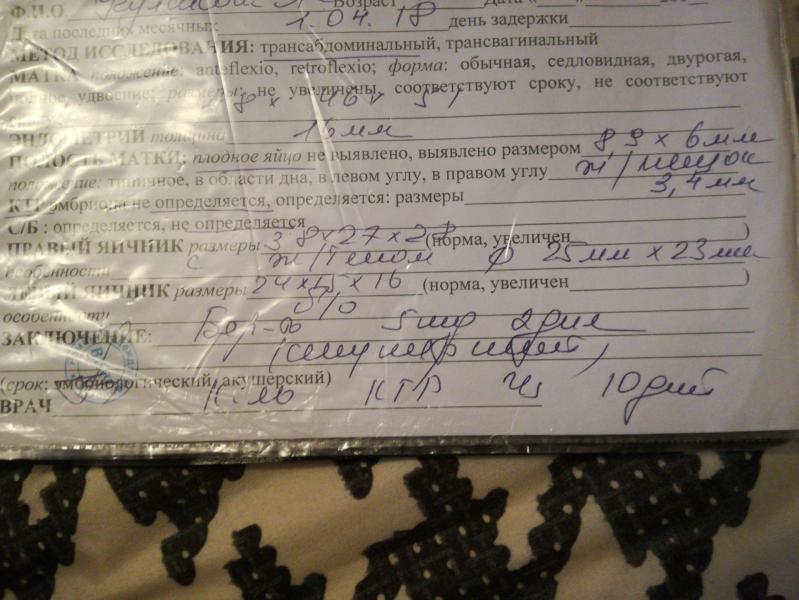 Ф.И.О Возраст Дата
Дата последних месячных 1.04.18 день задержки
МЕТОД ИССЛЕДОВАНИЯ: трансабдоминальный, трансвагинальный
МАТКА положение: anteflexio, retroflexio; форма: обычная, седловидная, двурогая,
удвоение; размеры: не увеличены, соответствуют сроку, не соответствуют
46 x 51
ЭНДОМЕТРИЙ толщина 16 мм
ПОЛОСТЬ МАТКИ: плодное яйцо не выявлено, выявлено размером 8,9 x 6 мм
положение: типичное, в области дна, в левом углу, в правом углу ж/мешок
3,4 мм
КТР эмбриона не определяется, определяется: размеры
С/Б : определяется, не определяется
ПРАВЫЙ ЯИЧНИК размеры 38x27x28 (норма, увеличен )
особенности с ж/телом ф 25мм x 23мм
ЛЕВЫЙ ЯИЧНИК размеры 24x15x16 (норма, увеличен )
особенности б/о
ЗАКЛЮЧЕНИЕ: Бер-ть 5нед 2дня
(срок: эмбриологический, акушерский)
ВРАЧ КТР Ч/з 10дней